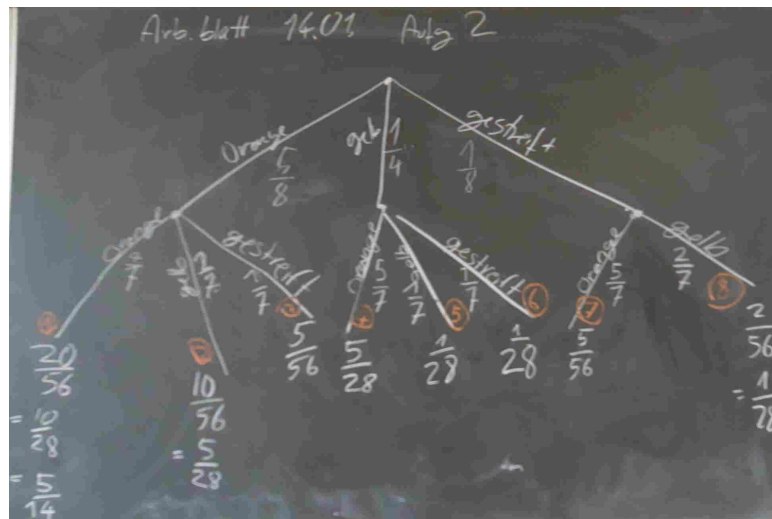 Arb.blatt 14.01 Aufg 2
Orange 5/8
gelb 1/4
gestreift 1/8
Orange 4/7
gelb 2/7
gestreift 1/7
Orange 5/7
gelb 1/7
gestreift 1/7
Orange 5/7
gelb 2/7
5 6 7 8
20/56 = 10/28 = 5/14
10/56 = 5/28
5/56
5/28
1/28
1/28
5/56
2/56 = 1/28